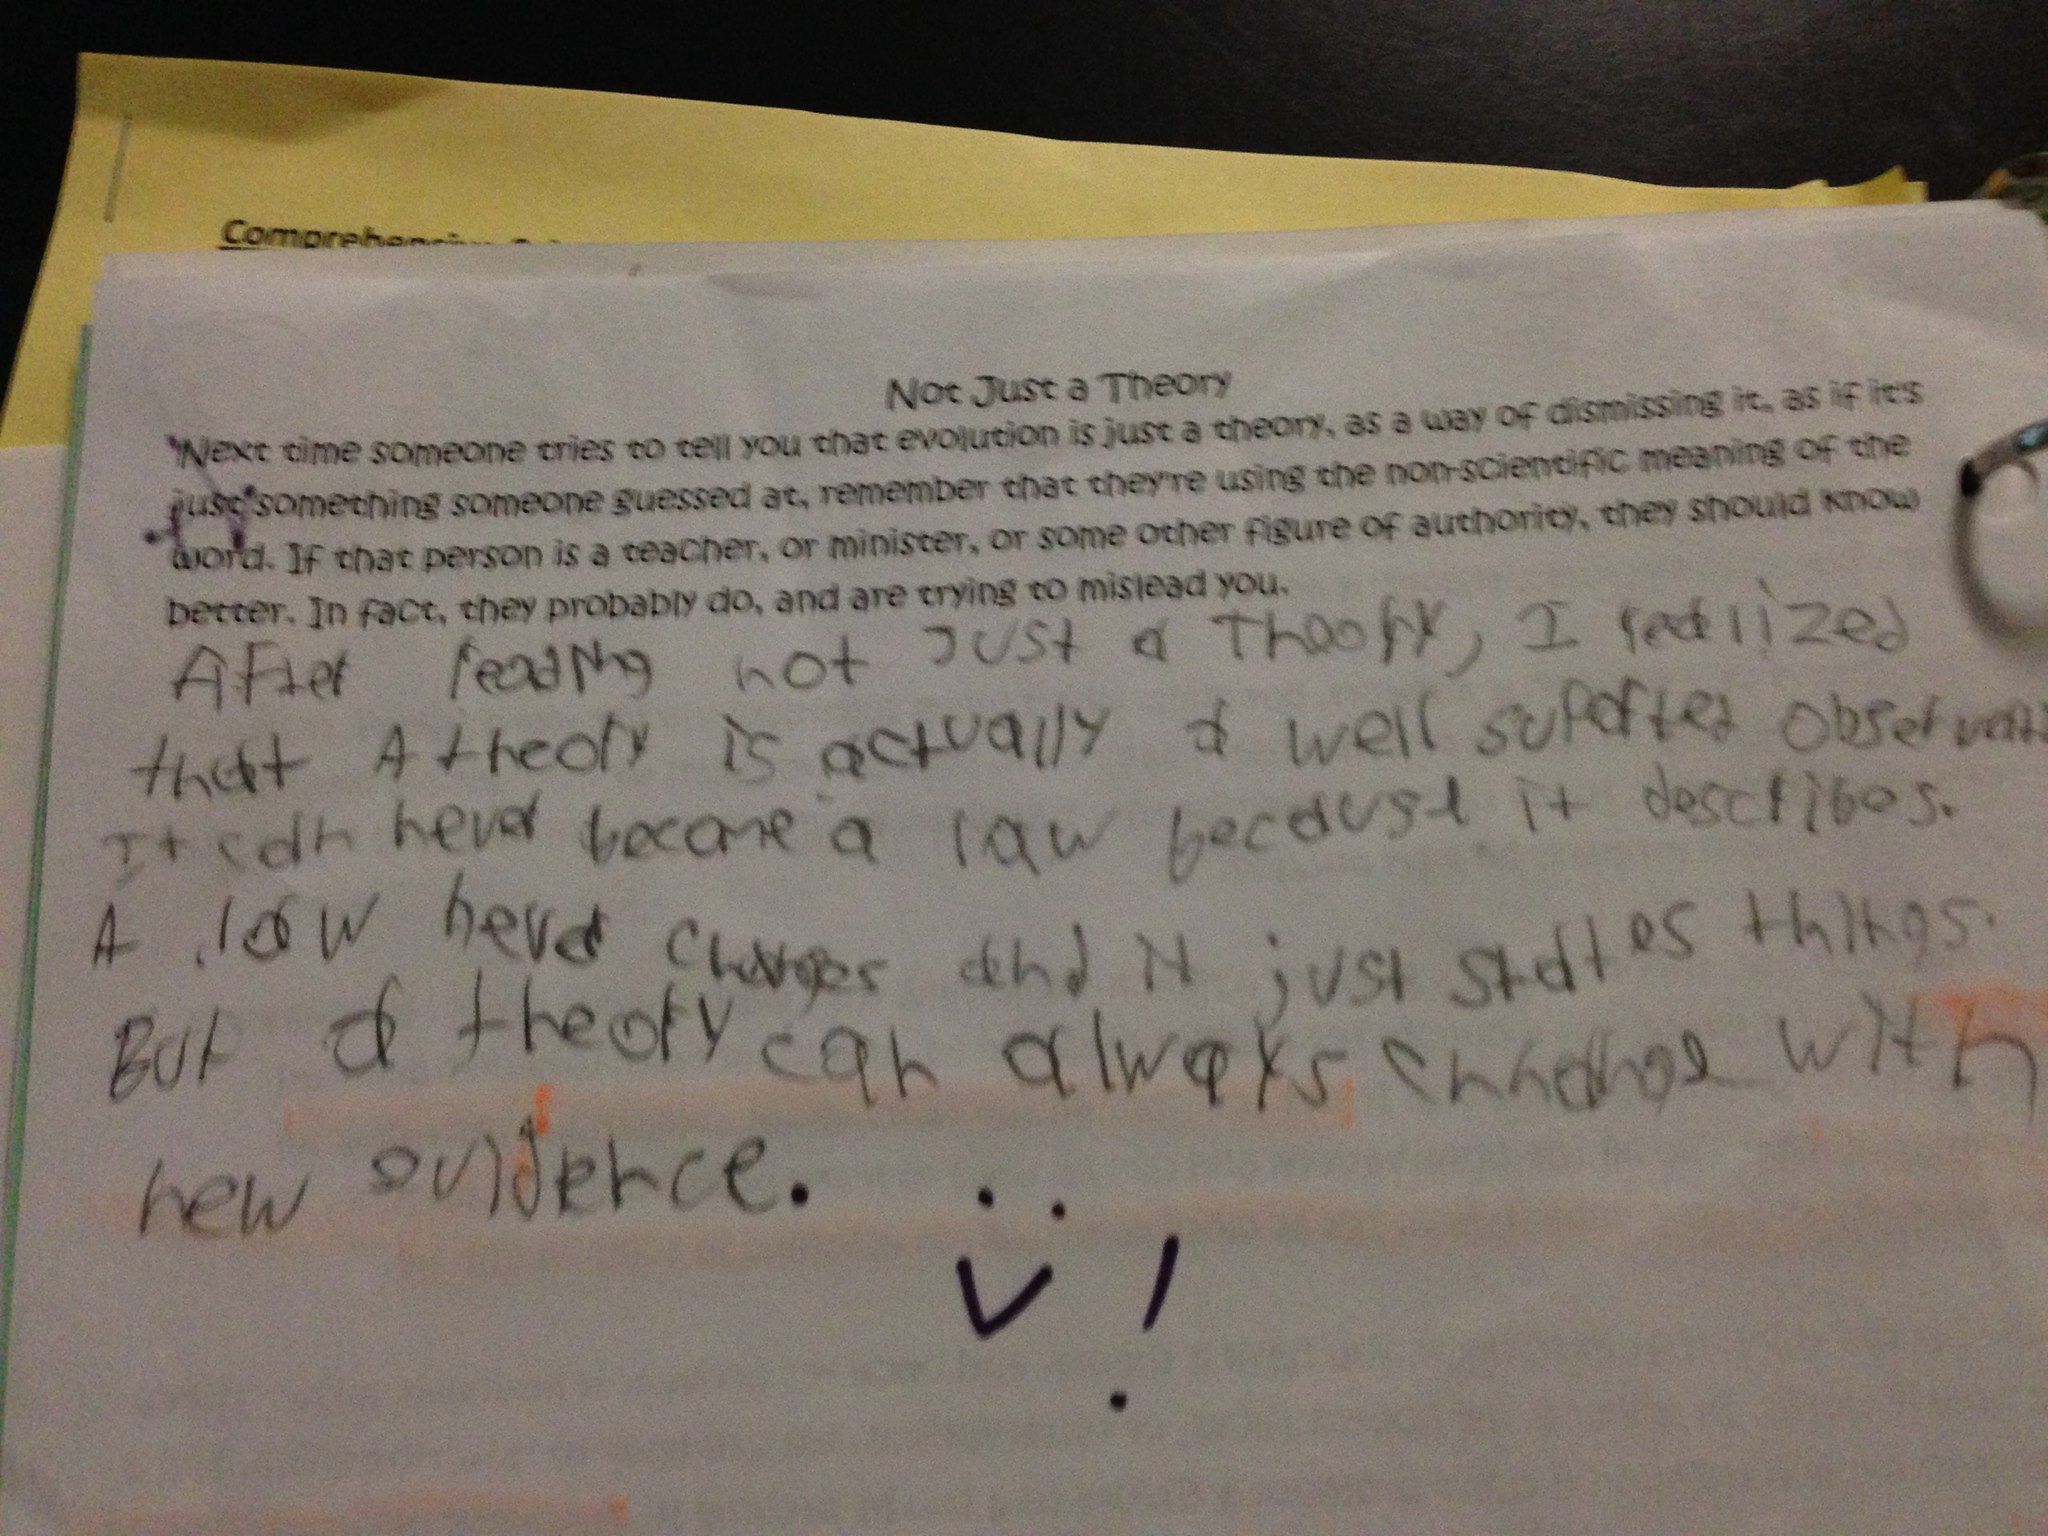 Comprehensive
Not Just a Theory
"Next time someone tries to tell you that evolution is just a theory, as a way of dismissing it, as if it's
just something someone guessed at, remember that they're using the non-scientific meaning of the
word. If that person is a teacher, or minister, or some other figure of authority, they should know
better. In fact, they probably do, and are trying to mislead you.
After reading not Just a Theory, I realized
that A theory is actually a well suported observati
It can never become a law because it describes.
A law never changes and it just states things.
But a theory can always chhange with
new evidence.